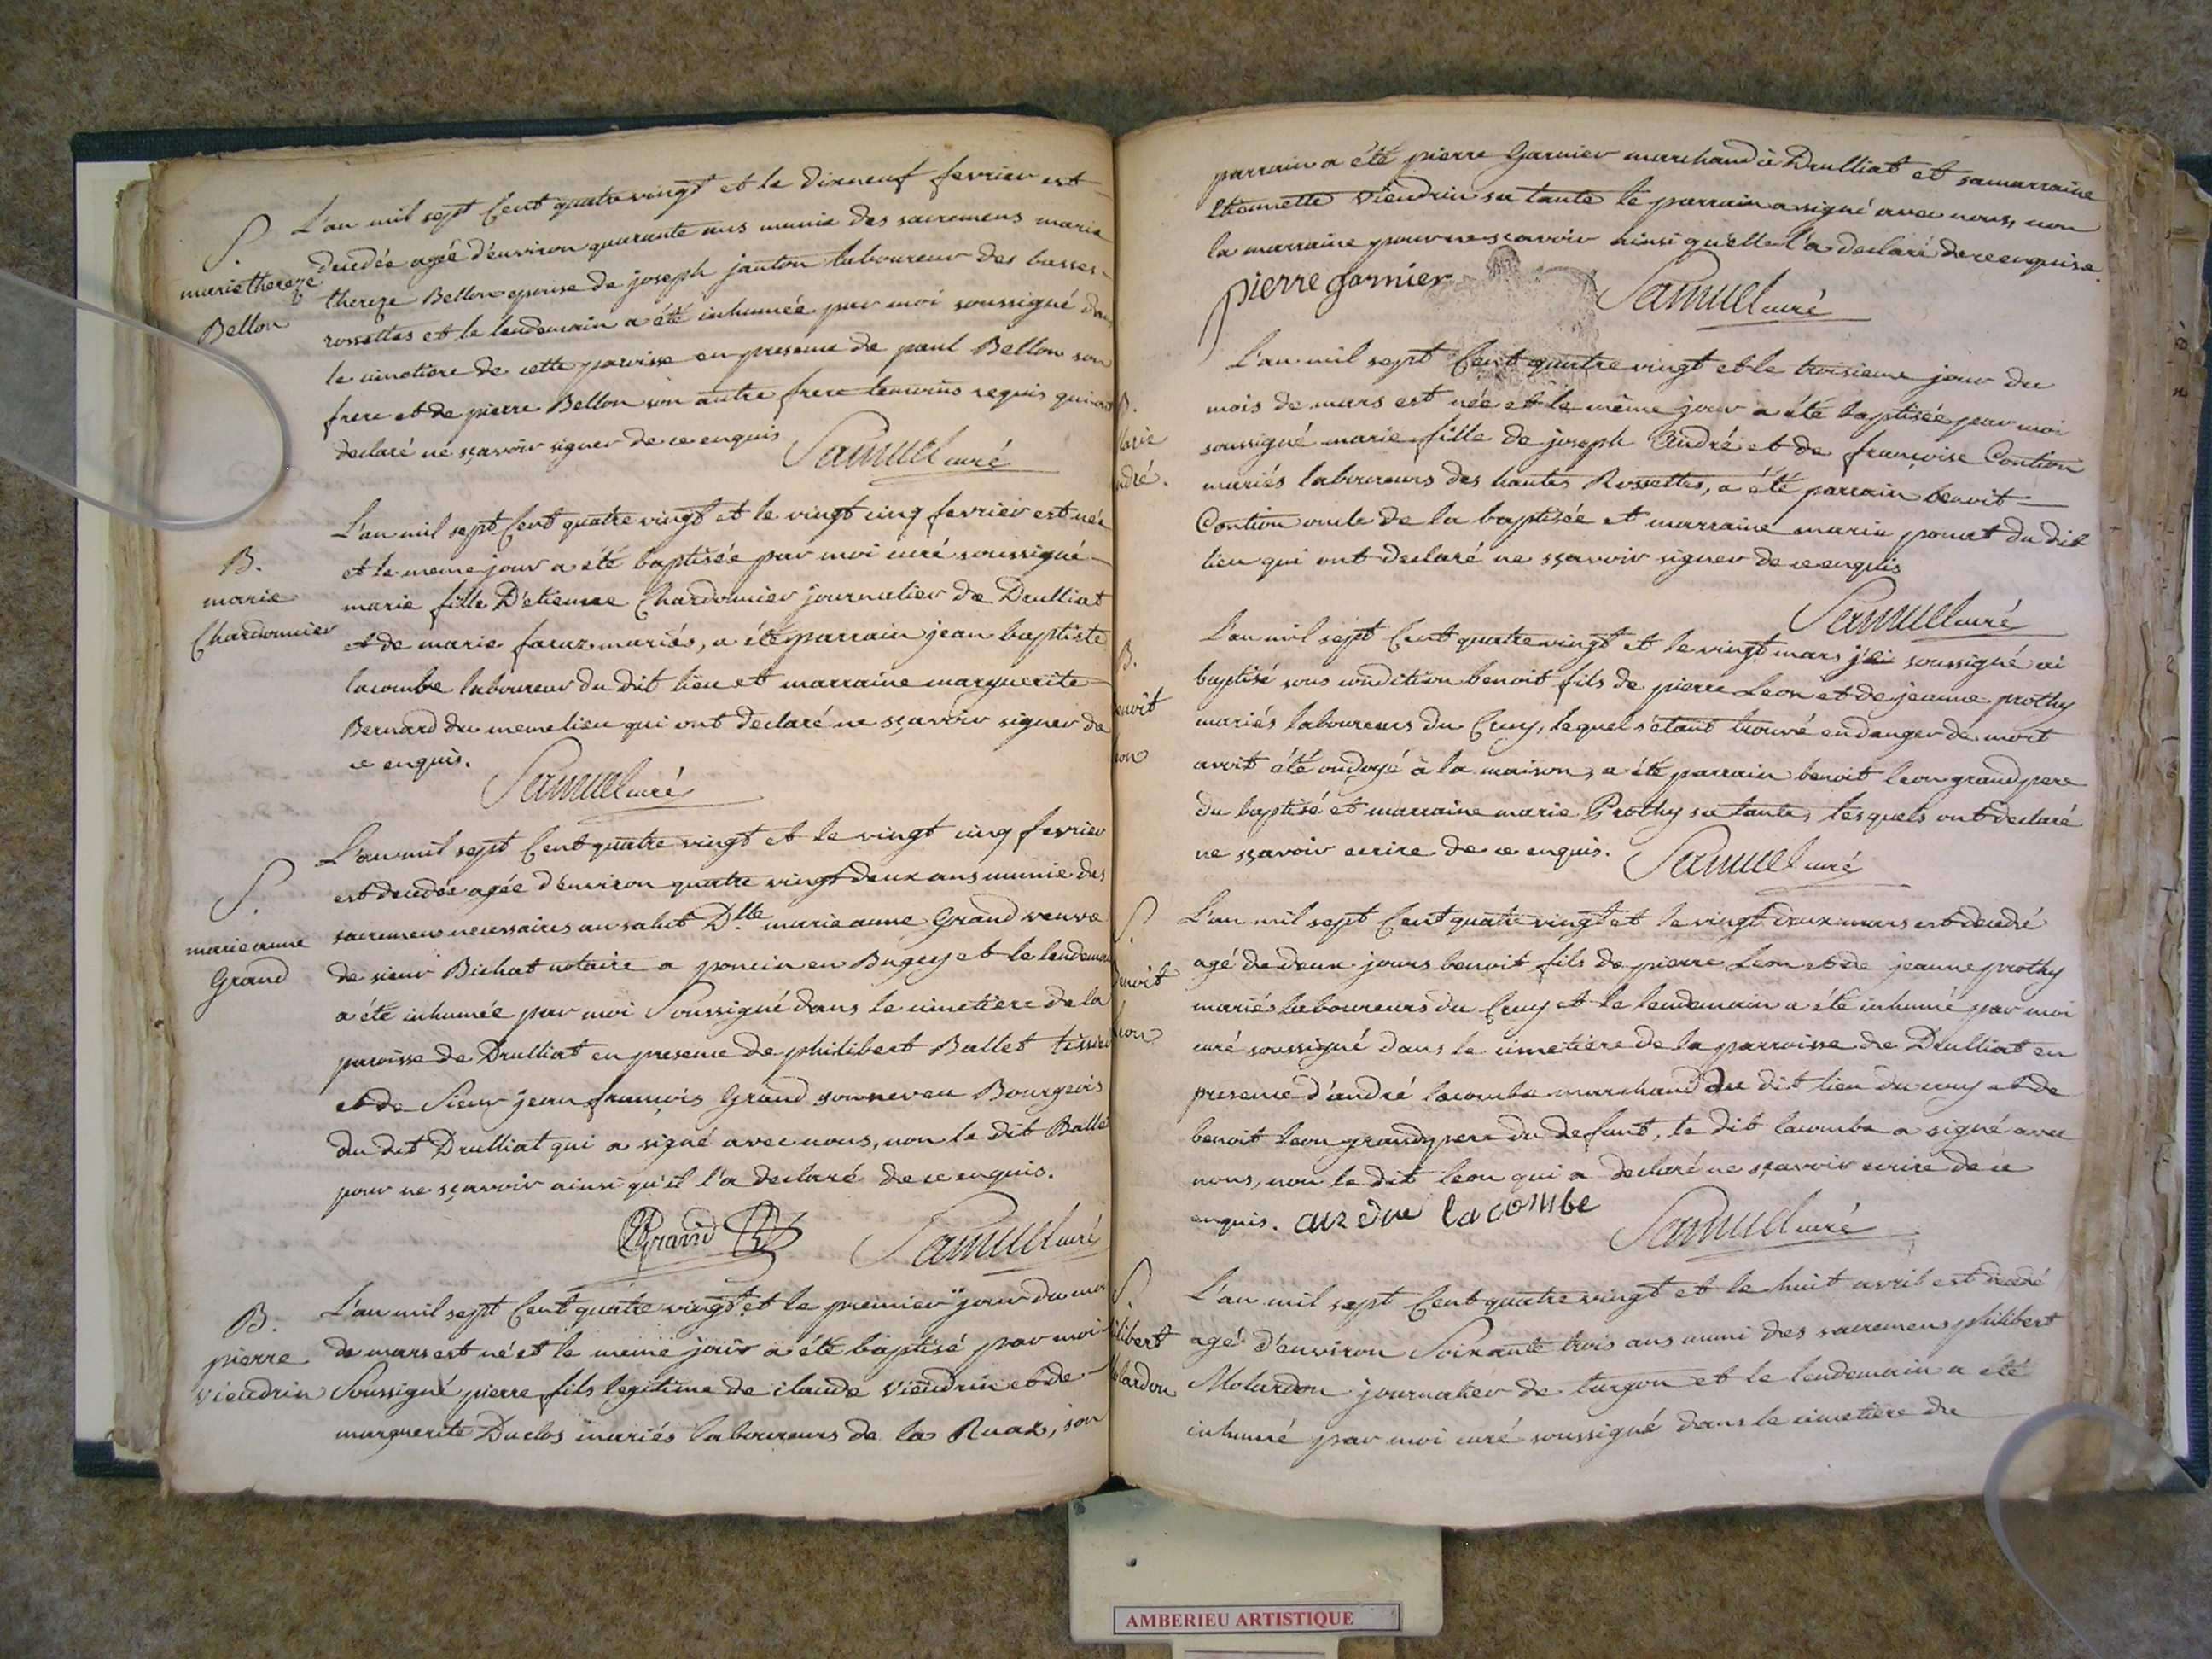 S.
marie thereze
Bellon
L'an mil sept Cent quatre vingt et le dixneuf fevrier est
decedée agée d'environ quarante ans munie des sacremens marie
thereze Bellon epouse de joseph janton laboureur des basses
rossettes et le lendemain a été inhumée par moi soussigné dans
le cimetiere de cette paroisse en presence de paul Bellon son
frere et de pierre Bellon son autre frere temoins requis qui ont
declaré ne sçavoir signer de ce enquis
Samuel curé
B.
marie
Chardonnier
L'an mil sept Cent quatre vingt et le vingt cinq fevrier est née
et le meme jour a été baptisée par moi curé soussigné
marie fille D'etienne Chardonnier journalier de Drulliat
et de marie favaz mariés, a été parrain jean baptiste
lacombe laboureur du dit lieu et marraine marguerite
Bernard du meme lieu qui ont declaré ne sçavoir signer de
ce enquis.
Samuel curé
S.
marie anne
Grand
L'an mil sept Cent quatre vingt et le vingt cinq fevrier
est decedée agée d'environ quatre vingt deux ans munie des
sacremens necessaires au salut D.lle marie anne Grand veuve
de sieur Bichat notaire a poncin en Bugey et le lendemain
a été inhumée par moi Soussigné dans le cimetiere de la
paroisse de Drulliat en presence de philibert Ballet tissier
et de Sieur jean françois Grand son neveu Bourgeois
du dit Drulliat qui a signé avec nous, non le dit Ballet
pour ne sçavoir ainsi qu'il l'a declaré de ce enquis.
Grand Samuel curé
B.
pierre
vieudrin
L'an mil sept Cent quatre vingt et le premier jour du mois
de mars est né et le meme jour a été baptisé par moi
Soussigné pierre fils legitime de claude vieudrin et de
marguerite Duclos mariés laboureurs de la Ruaz, son
parrain a été pierre Garnier marchand à Drulliat et sa marraine
thomette vieudrin sa tante le parrain a signé avec nous, non
la marraine pour ne sçavoir ainsi qu'elle l'a declaré de ce enquise
pierre garnier Samuel curé
B.
Marie
André.
L'an mil sept Cent quatre vingt et le troisieme jour du
mois de mars est née et le même jour a été baptisée par moi
soussigné marie fille de joseph André et de françoise Contion
mariés laboureurs des hautes Rossettes, a été parrain benoit
Contion oncle de la baptisée et marraine marie ponat du dit
lieu qui ont declaré ne sçavoir signer de ce enquis
Samuel curé
B.
benoit
leon
L'an mil sept Cent quatre vingt et le vingt mars j'ai soussigné ai
baptisé sous condition benoit fils de pierre Leon et de jeanne prothy
mariés laboureurs du Cruy, lequel s'étant trouvé en danger de mort
avoit été ondoyé à la maison, a été parrain benoit leon grand pere
du baptisé et marraine marie Prothy sa tante, lesquels ont declaré
ne sçavoir ecrire de ce enquis. Samuel curé
S.
benoit
leon
L'an mil sept Cent quatre vingt et le vingt deux mars est decedé
agé de deux jours benoit fils de pierre Leon et de jeanne prothy
mariés laboureurs du Cruy et le lendemain a été inhumé par moi
curé soussigné dans le cimetiere de la parroisse de Drulliat en
presence d'andré lacombe marchand du dit lieu du cruy et de
benoit leon grand pere du defunt, le dit lacombe a signé avec
nous, non le dit leon qui a declaré ne sçavoir ecrire de ce
enquis. andre lacombe Samuel curé
S.
philibert
Molardon
L'an mil sept Cent quatre vingt et le huit avril est decedé
agé d'environ Soixante trois ans muni des sacremens philibert
Molardon journalier de turgon et le lendemain a été
inhumé par moi curé soussigné dans le cimetiere du
AMBERIEU ARTISTIQUE